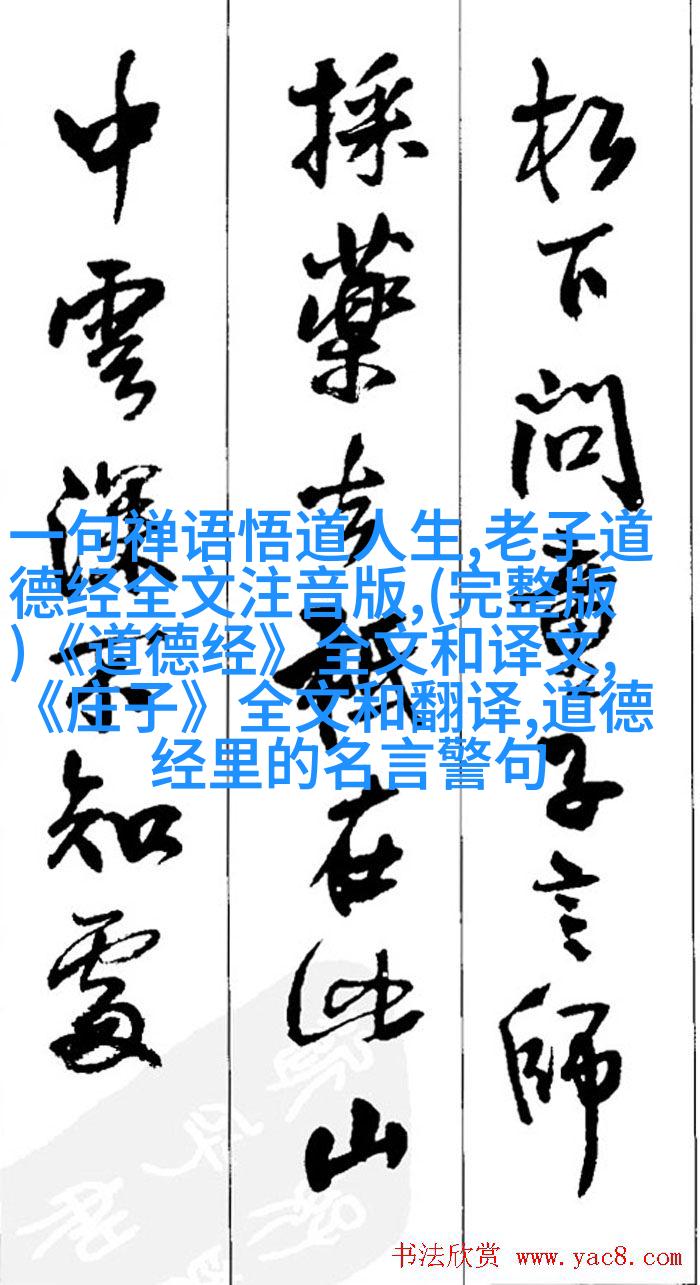 松下问童子言師
採藥去祇在此山
中雲深不知處
一句禅语悟道人生,老子道
德经全文注音版,(完整版
)《道德经》全文和译文,
《庄子》全文和翻译,道德
经里的名言警句
书法欣赏 www.yac8.com